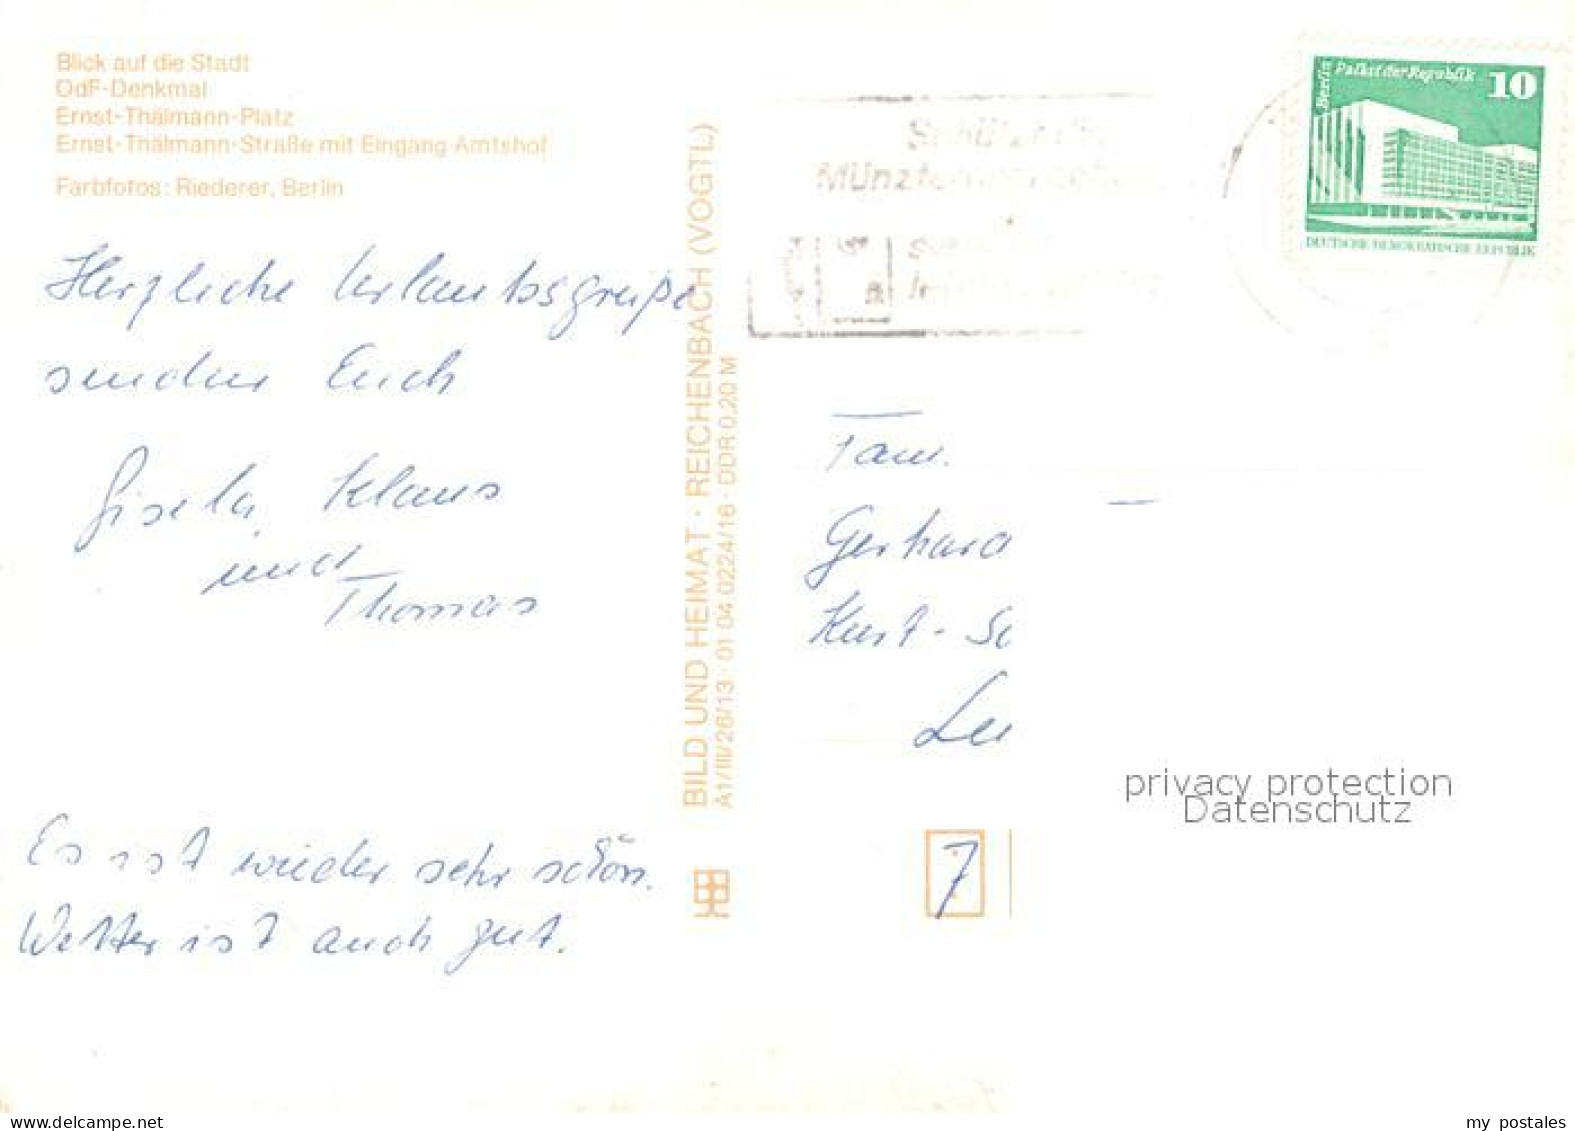 Blick auf die Stadt
OdF-Denkmal
Ernst-Thälmann-Platz
Ernst-Thälmann-Straße mit Eingang Amtshof
Farbfotos: Riederer, Berlin
Herzliche Urlaubsgrüße
senden Euch
Gisela, Klaus
und
Thomas
Es ist wieder sehr schön.
Wetter ist auch gut.
BILD UND HEIMAT · REICHENBACH (VOGTL)
A1/III/26/13 · 01 04 0224/16 · DDR 0,20 M
Schützt die
Berlin Palast der Republik 10
DEUTSCHE DEMOKRATISCHE REPUBLIK
Fam.
Gerhard
Kurt-Sc
7
privacy protection
Datenschutz
www.delcampe.net
my postales